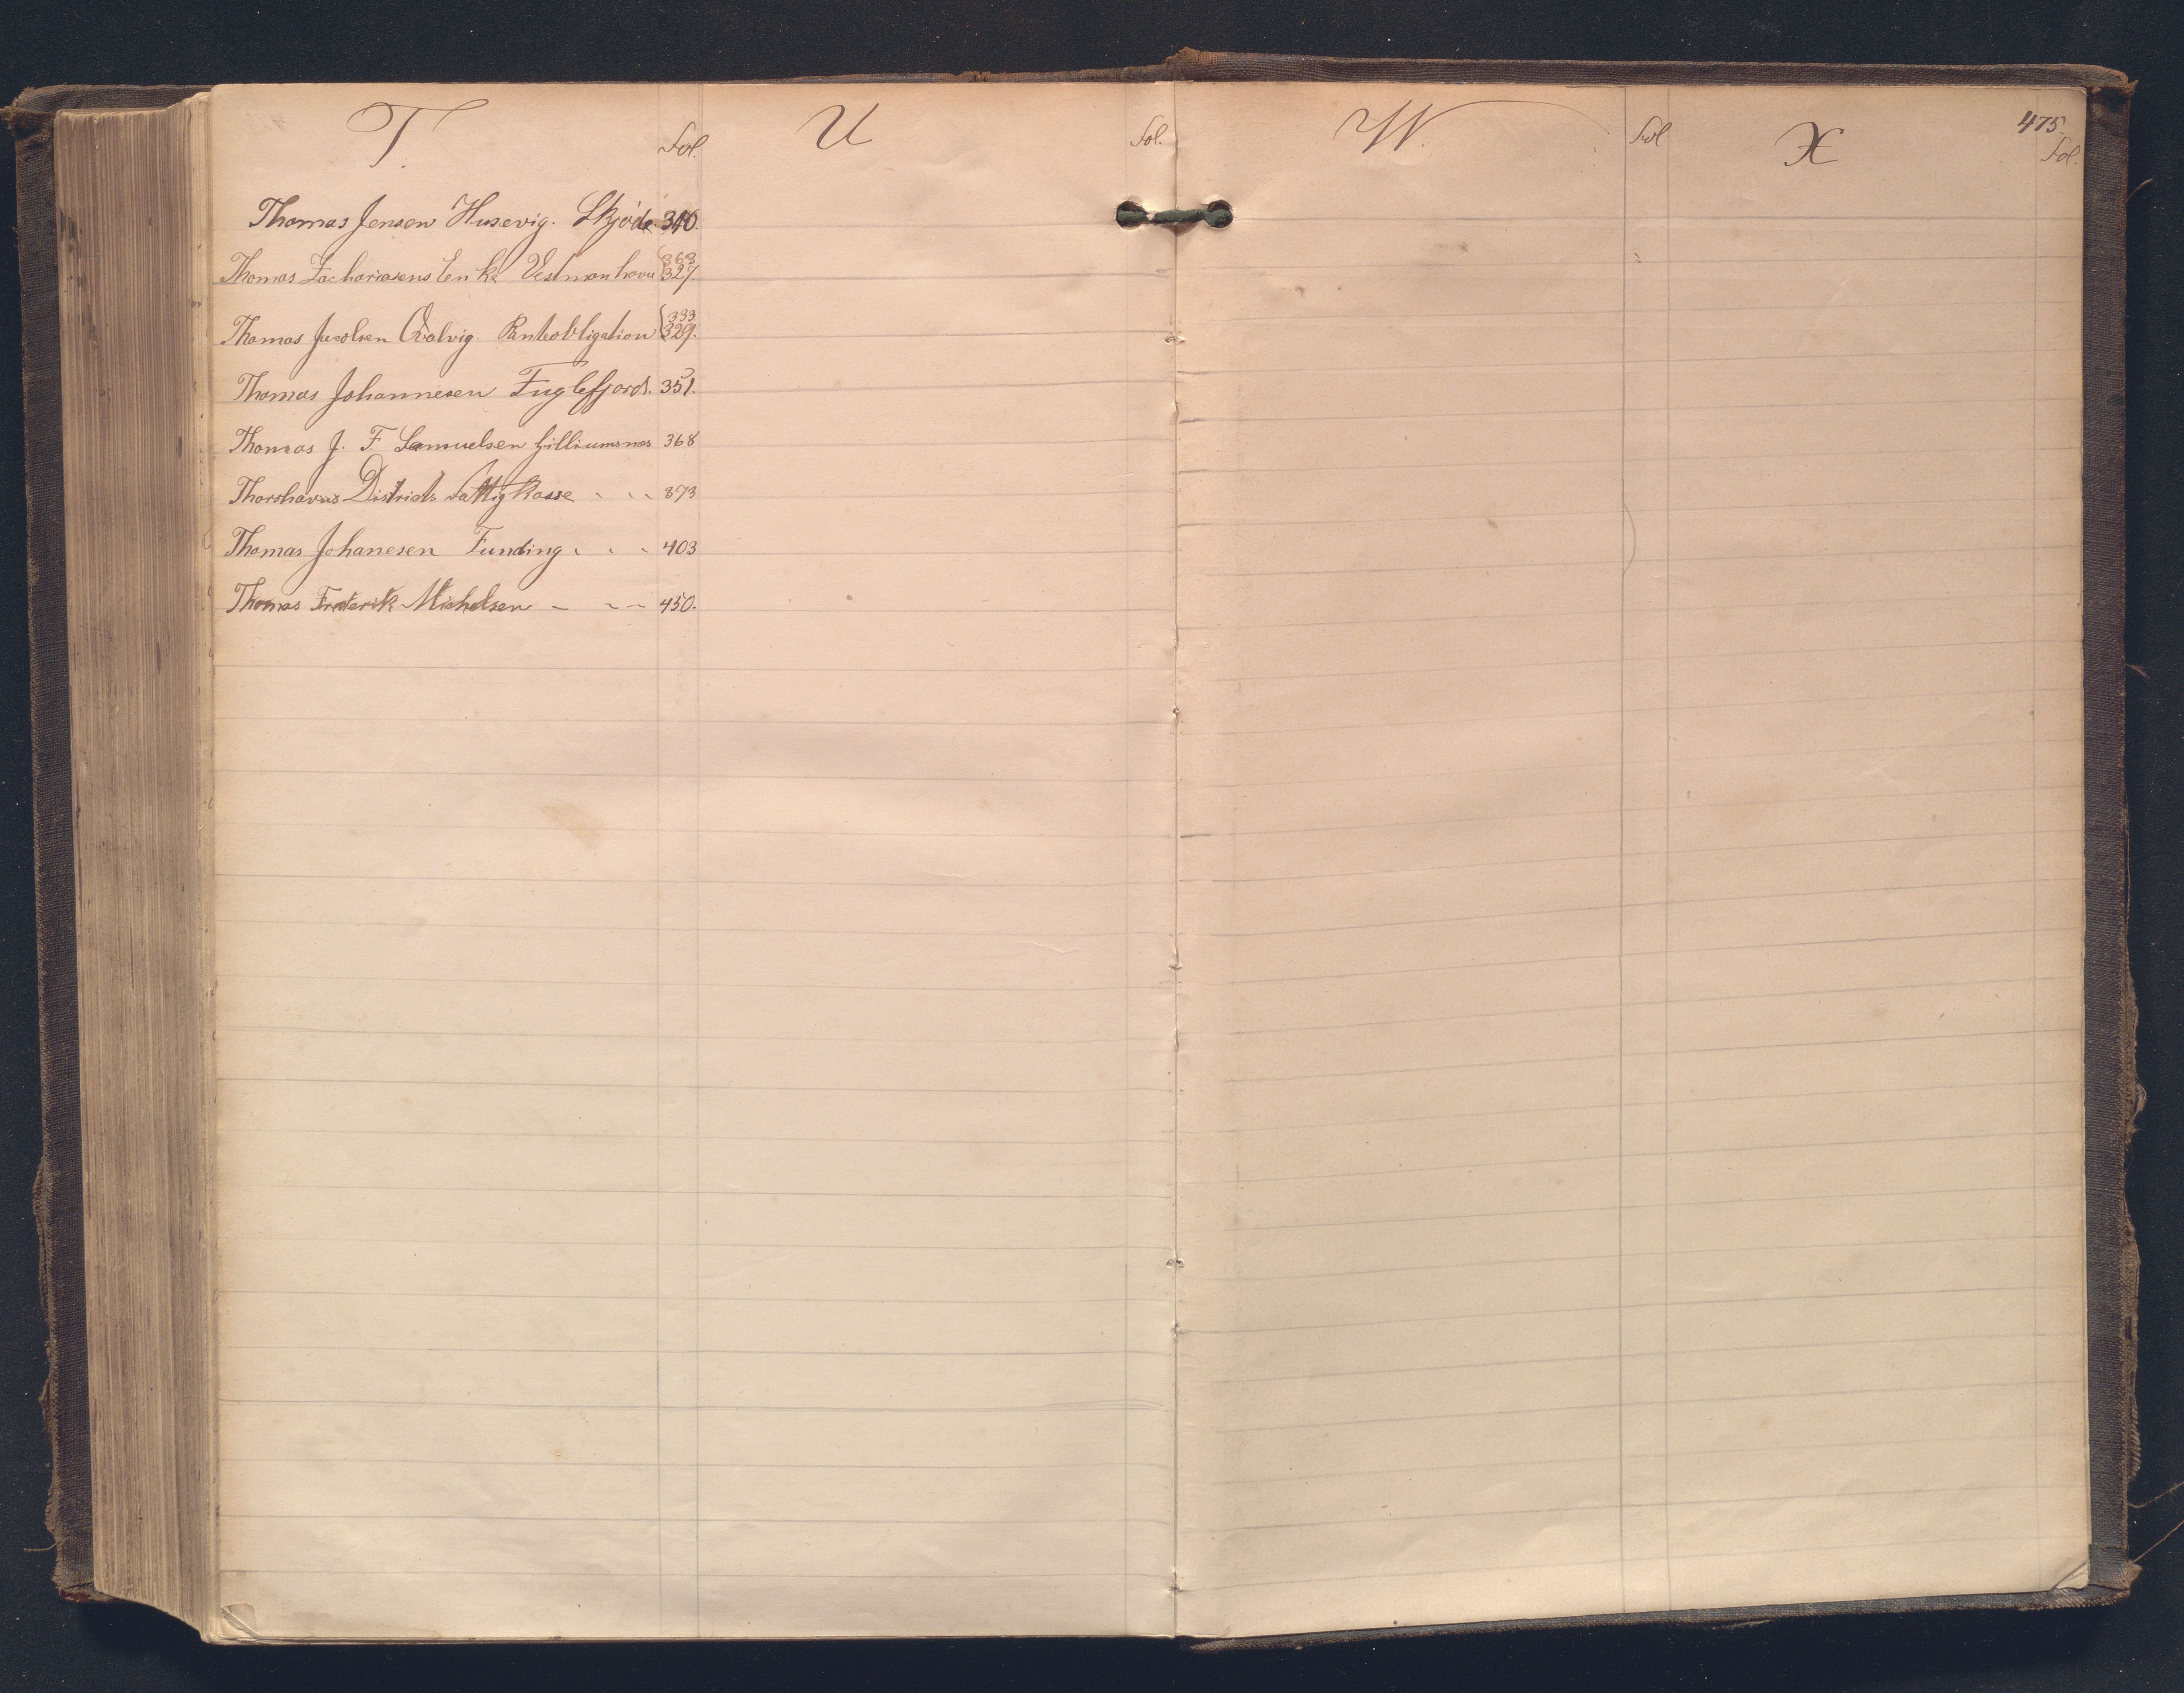 T. Fol. U Fol. W. Fol X 475.
Fol.
Thomas Jensen Husevig. Skjöde 310.
363
Thomas Zachariasens Enke Vestmanhavn 327.
393
Thomas Jacobsen Qvalvig. Panteobligation 329.
Thomas Johannesen Fuglefjord. 351.
Thomas J. F Samuelsen 368
Thorshavns Districts Fattigkasse - - - 373
Thomas Johanesen Funding - - - 403
Thomas Frederik Michelsen - - - 450.